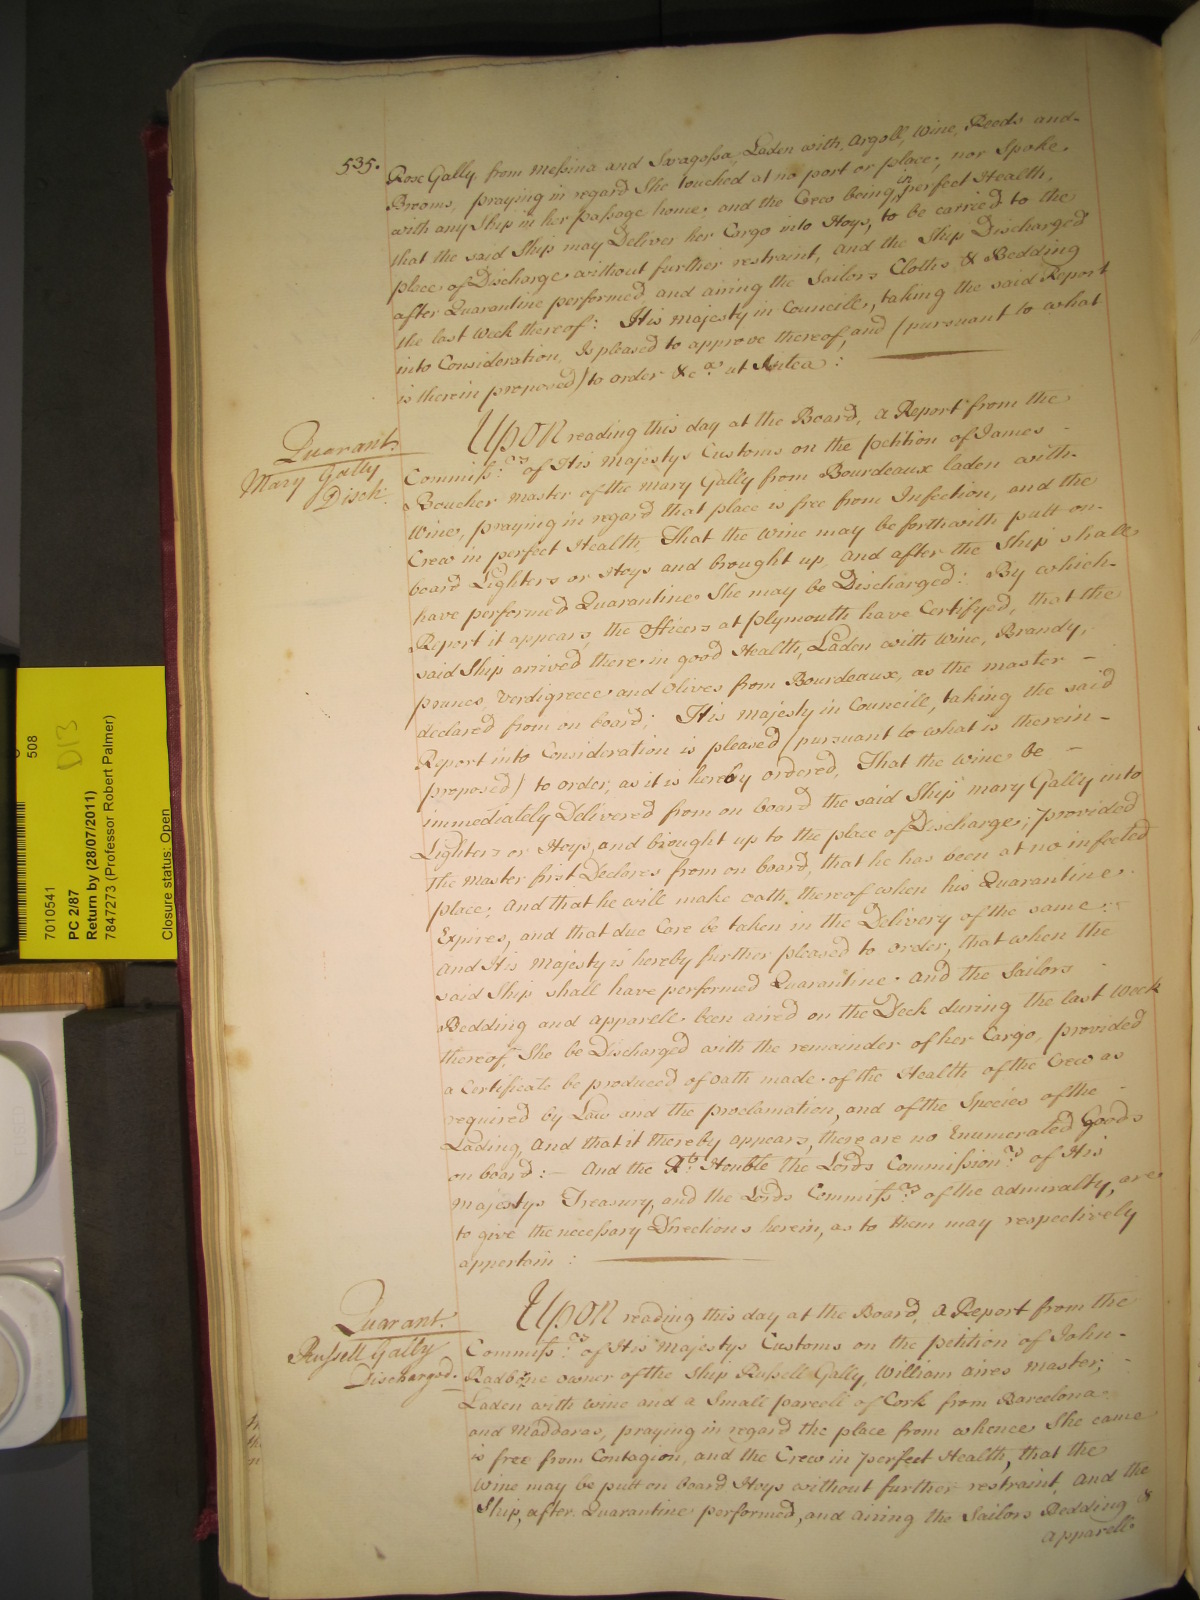 535.
Rose Gally from Messina and Saragossa, Laden with, Argoll, Wine, Reeds and
Brooms, praying in regard She touched at no port or place, nor Spoke
with any Ship in her passage home, and the Crew being in perfect Health,
that the said Ship may Deliver her Cargo into Hoys, to be carried to the
place of Discharge without further restraint, and the Ship Discharged
after Quarantine performed and airing the Sailors Clothes & Bedding
the last Week thereof: His Majesty in Councill, taking the said Report
into Consideration, Is pleased to approve thereof, and (pursuant to what
is therein proposed) to order &ca. ut Antea:
Quarant.
Mary Gally
Disch.
UPON reading this day at the Board, a Report from the
Commissrs. of His Majestys Customs on the petition of James
Boucher Master of the Mary Gally from Bourdeaux laden with
Wine, praying in regard that place is free from Infection, and the
Crew in perfect Health, That the Wine may be forthwith putt on
board Lighters or Hoys and brought up, and after the Ship shall
have performed Quarantine She may be Discharged: By which
Report it appears, the Officers at Plymouth have Certifyed, that the
said Ship arrived there in good Health, Laden with Wine, Brandy,
prunes, Verdigreece and Olives from Bourdeaux, as the Master
declared from on board; His Majesty in Councill, taking the said
Report into Consideration is pleased (pursuant to what is therein
proposed) to order, as it is hereby ordered, That the Wine be
immediately Delivered from on board the said Ship Mary Gally into
Lighters or Hoys, and brought up to the place of Discharge; provided
the Master first Declares from on board, that he has been at no infected
place, And that he will make oath thereof when his Quarantine
Expires, and that due Care be taken in the Delivery of the same:
And His Majesty is hereby further pleased to order, that when the
said Ship shall have performed Quarantine and the Sailors
Bedding and apparell been aired on the Deck during the last Week
thereof, She be Discharged with the remainder of her Cargo, provided
a Certificate be produced of oath made of the Health of the Crew as
required by Law and the proclamation, and of the Species of the
Lading, And that it thereby appears, there are no Enumerated Goods
on board: And the Rt. Honble the Lords Commissionrs. of His
Majestys Treasury, and the Lords Commissrs. of the Admiralty, are
to give the necessary Directions herein, as to them may respectively
appertain:
Quarant.
Russell Gally
Discharged.
UPON reading this day at the Board, a Report from the
Commissrs. of His Majestys Customs on the petition of John
Radbone owner of the Ship Russell Gally, William Aires Master;
Laden with wine and a Small parcell of Cork from Barcelona
and Maddaras, praying in regard the place from whence She came
is free from Contagion, and the Crew in perfect Health, that the
Wine may be putt on board Hoys without further restraint, And the
Ship, after Quarantine performed, and airing the Sailors Bedding &
apparell
508
D13
7010541
PC 2/87
Return by (28/07/2011)
7847273 (Professor Robert Palmer)
Closure status: Open